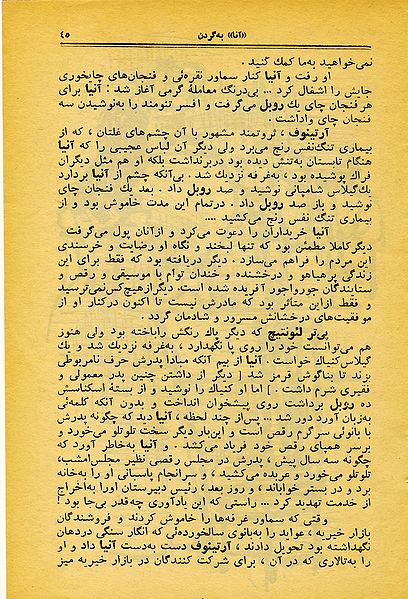 «آنا» به‌گردن ۴۵
نمی‌خواهید به‌ما کمك گنید .
او رفت و آنیا کنار سماور نقره‌ئی و فنجان‌های چایخوری
جایش را اشغال کرد ... بی‌درنگ معاملهٔ گرمی آغاز شد : آنیا برای
هر فنجان چای یك روبل می‌گرفت و افسر تنومند را به‌نوشیدن سه
فنجان چای واداشت .
آرتینوف ، ثروتمند مشهور با آن چشم‌های غلتان ، که از
بیماری تنگ‌نفس رنج می‌برد ولی دیگر آن لباس عجیبی را که آنیا
هنگام تابستان به‌تنش دیده بود دربرنداشت بلکه او هم مثل دیگران
فراك پوشیده بود ، به‌غرفه نزدیك شد . بی‌آنکه چشم از آنیا بردارد
یك‌گیلاس شامپانی نوشید و صد روبل داد . بعد یك فنجان چای
نوشید و باز صد روبل داد . درتمام این مدت خاموش بود و از
بیماری تنگ نفس رنج می‌کشید ....
آنیا خریداران را دعوت می‌کرد و ازآنان پول می‌گرفت
دیگرکاملا مطمئن بود که تنها لبخند و نگاه او رضایت و خرسندی
این مردم را فراهم می‌سازد . دیگر دریافته بود که فقط برای این
زندگی پرهیاهو و درخشنده و خندان توام با موسیقی و رقص و
ستایندگان جورواجور آفریده شده است، دیگرازهیچ‌کس‌نمی‌ترسید
و فقط ازاین متأثر بود که مادرش نیست تا اکنون درکنار او از
موفقیت‌های درخشانش مسرور و شادمان گردد .
پی‌تر لئونتیچ که دیگر پاك رنگش راباخته بود ولی هنوز
هم می‌توانست خود را روی پا نگهدارد ، به‌غرفه نزدیك شد و یك
گیلاس‌کنیاك خواست . آنیا از بیم آنکه مبادا پدرش حرف نامربوطی
بزند تا بناگوش قرمز شد [ دیگر از داشتن چنین پدر معمولی و
فقیری شرم داشت . ] اما او کنیاك را نوشید و از بستهٔ اسکناسش
ده روبل برداشت روی پیشخوان انداخت و بدون آنکه کلمه‌ئی
به‌زبان آورد دور شد ... پس‌از چند لحظه ، آنیا دید که چگونه پدرش
با بانوئی سرگرم رقص است و این‌بار دیگر سخت تلوتلو می‌خورد و
برسر همپای رقص خود فریاد می‌کشد . و آنیا به‌خاطر آورد که
چگونه سه سال پیش ، پدرش در مجلس رقصی نظیر مجلس‌امشب،
تلوتلو می‌خورد و عربده می‌کشید ، و سرانجام پاسبانی او را به‌خانه
برد و در بستر خواباند ، و روز بعد ، رئیس دبیرستان اورا به‌اخراج
از خدمت تهدید کرد ... راستی که این یادآوری چه‌قدر بی‌جا بود !
وقتی که سماور غرفه‌ها را خاموش کردند و فروشندگان
بازار خیریه ، عواید را به‌بانوی سالخورده‌ئی که انگار سنگی دردهان
نگهداشته بود تحویل دادند ، آرتینوف دست به‌دست آنیا داد و او
را به‌تالاری که در آن ، برای شرکت کنندگان در بازار خیریه میز